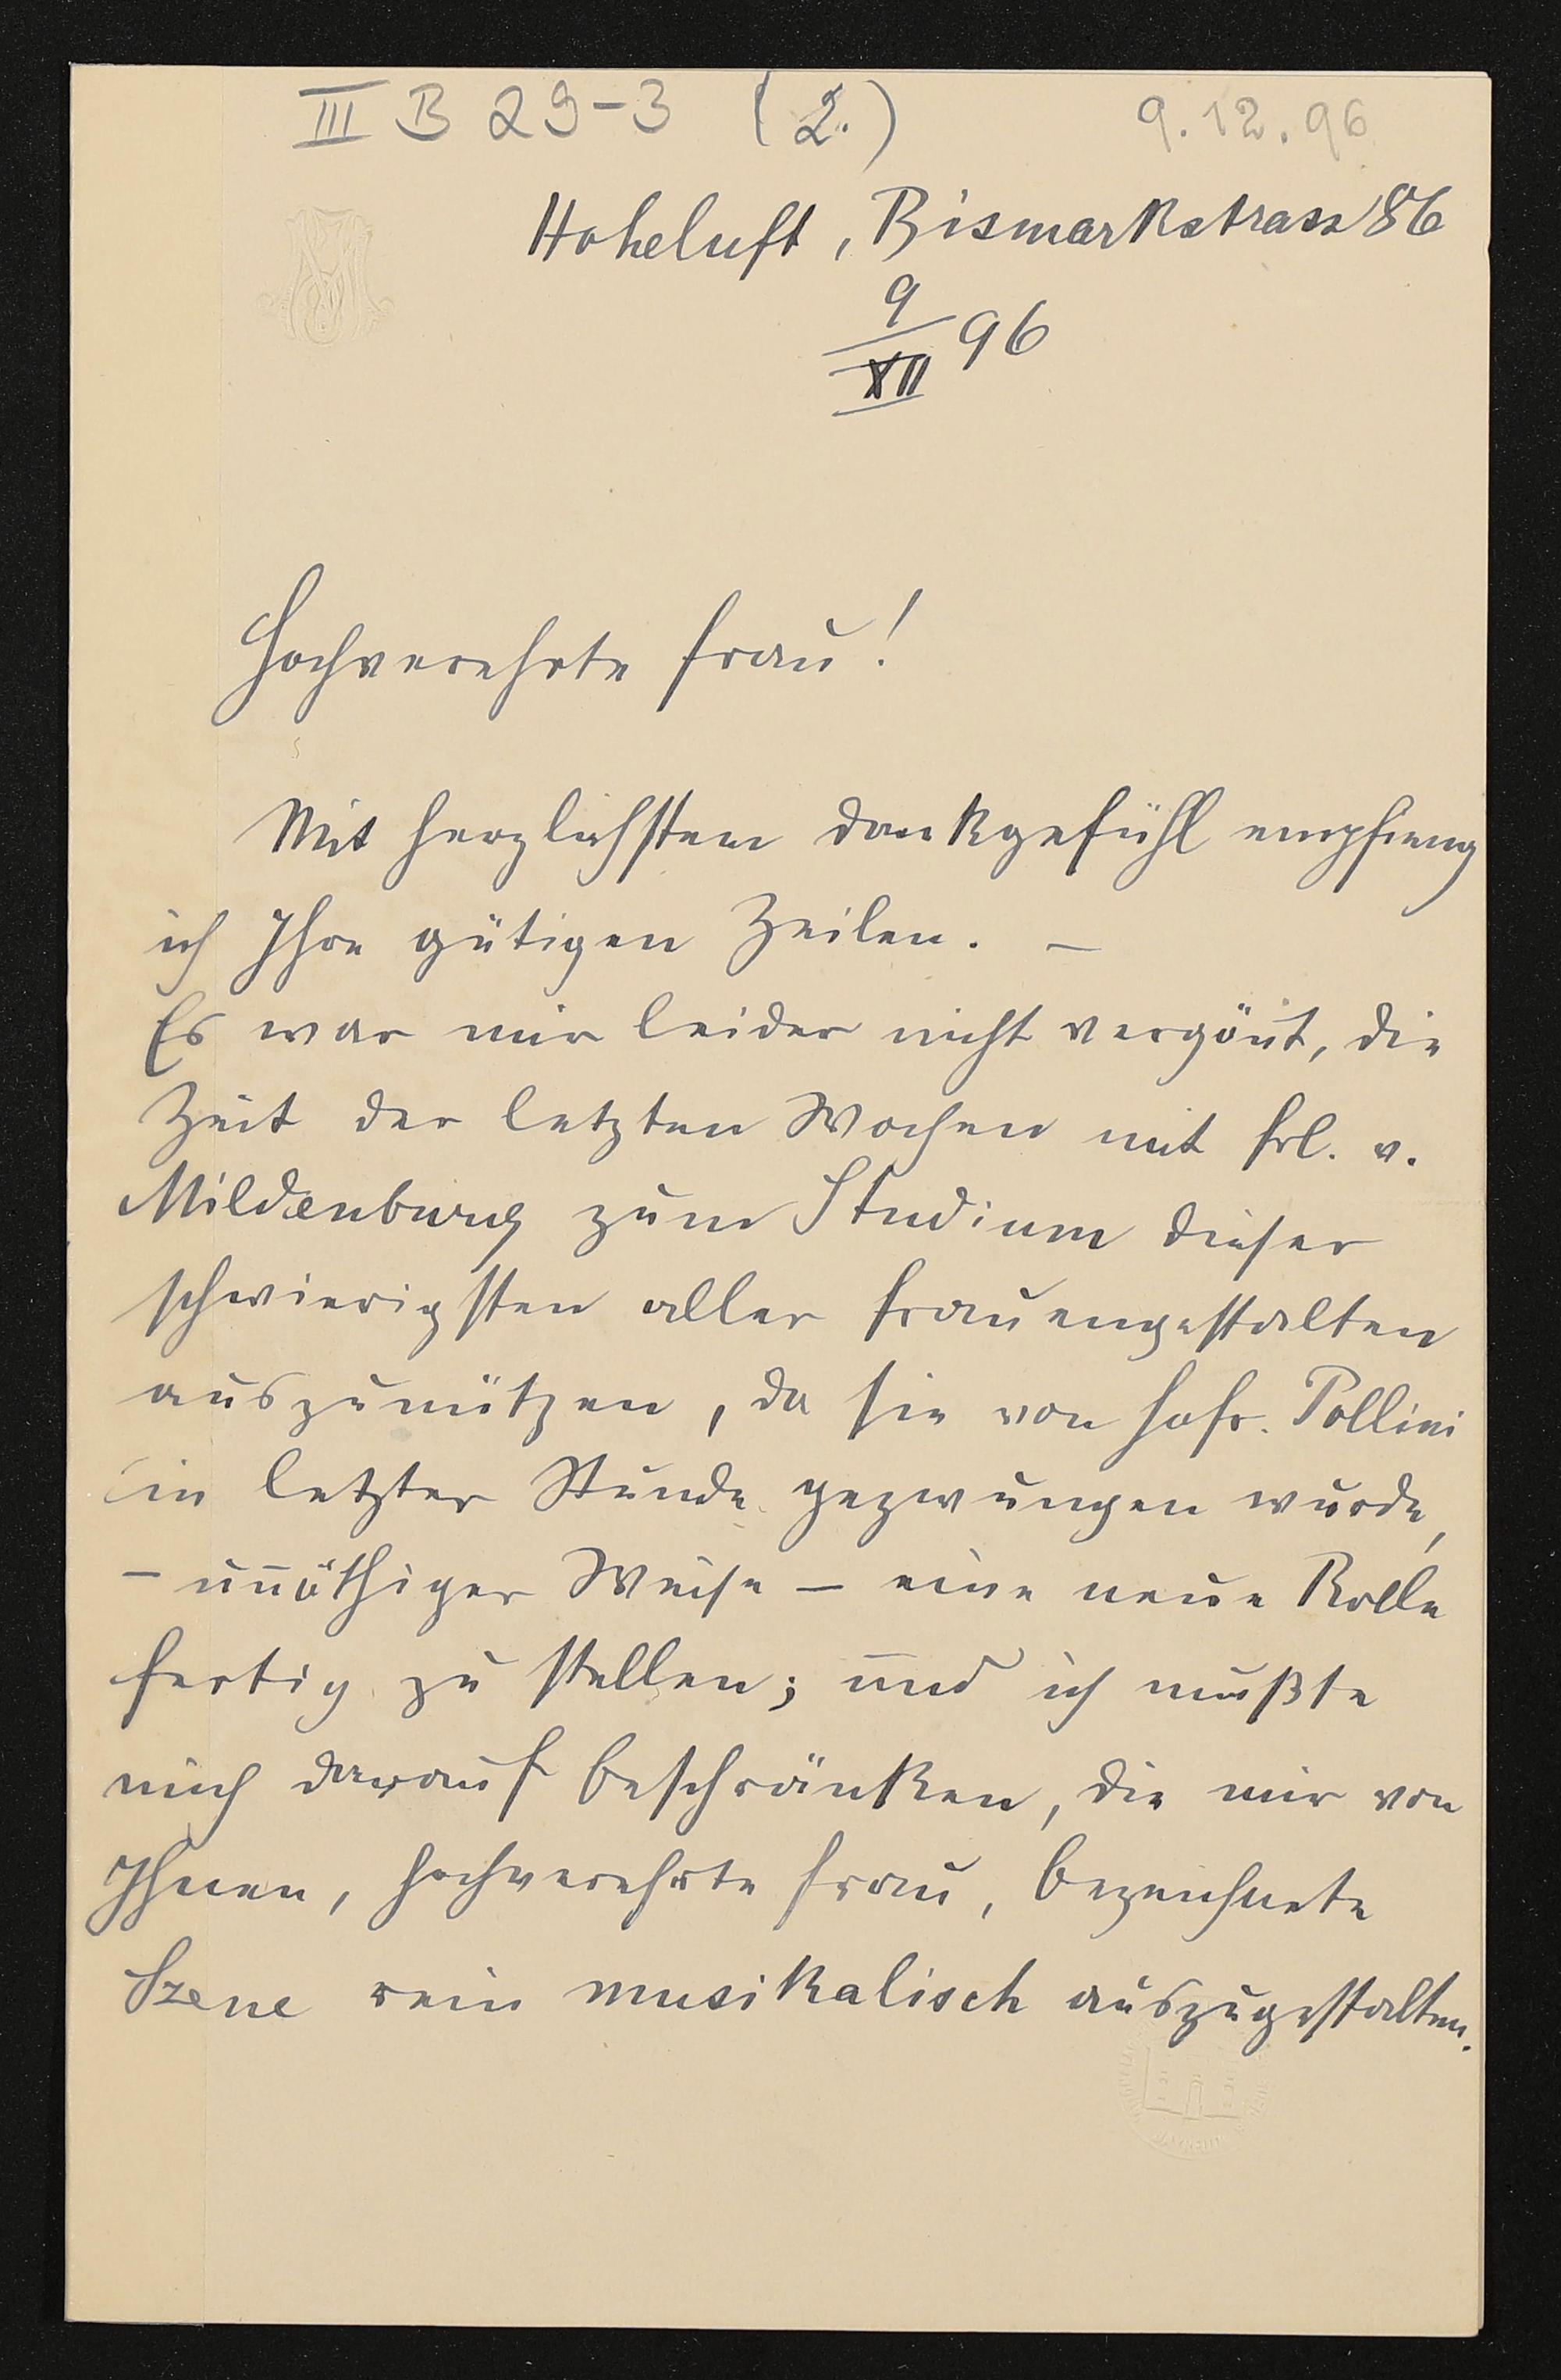 III B 29-3 (2.) 9.12.96
Hoheluft, Bismarkstrasse 86
9/XII 96
Hochverehrte Frau!
Mit herzlichstem Dankgefühl empfieng
ich Ihre gütigen Zeilen. –
Es war mir leider nicht vergön̄t, die
Zeit der letzten Wochen mit Frl. v.
Mildenburg zum Studium dieser
schwierigsten aller Frauengestalten
auszunützen, da sie von Hofr. Pollini
in letzter Stunde gezwungen wurde,
– un̄öthiger Weise – eine neue Rolle
fertig zu stellen; und ich mußte
mich darauf beschränken, die mir von
Ihnen, hochverehrte Frau, bezeichnete
Szene rein musikalisch auszugestalten.